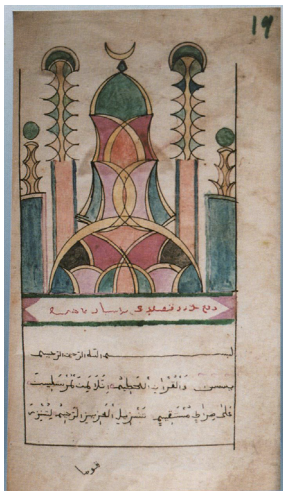 19
بسم الله الرحمن الرحيم
يسن وَالْقُرْانِ الْحَكِيمِ اِنَّكَ لَمِنَ الْمُرْسَلِينَ
عَلَى صِرَاطٍ مُسْتَقِيمٍ تَنْزِيلَ الْعَزِيزِ الرَّحِيمِ لِتُنْذِرَ
قوما